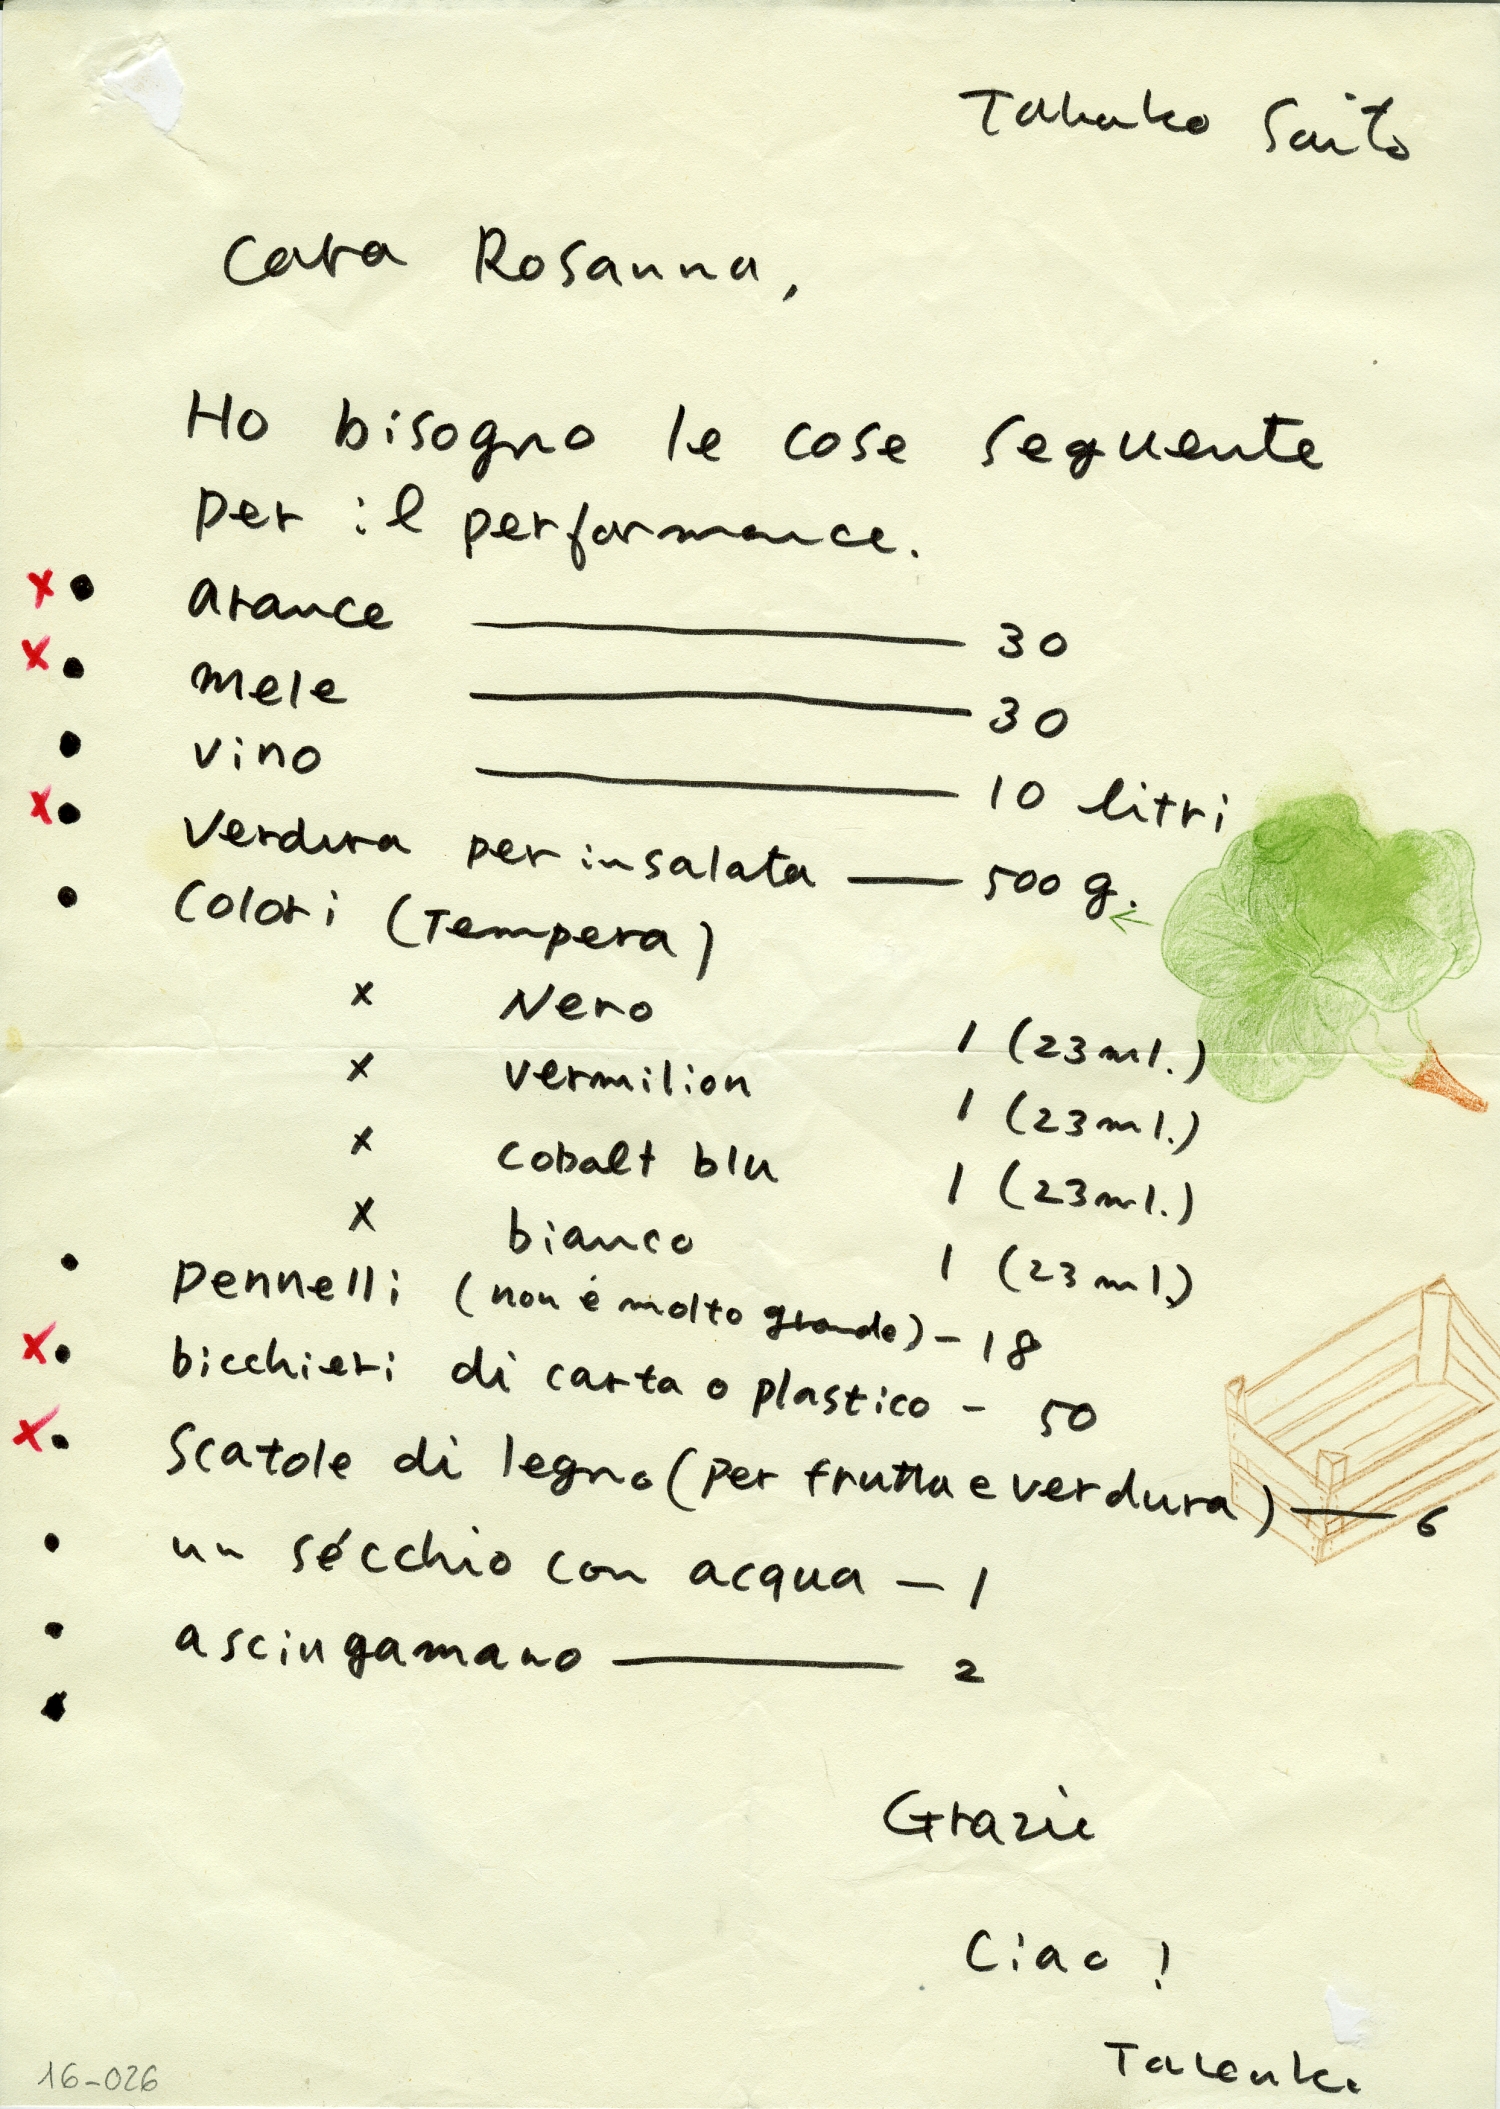 Takako Saito
Cara Rosanna,
Ho bisogno le cose seguente
per il performance.
x • arance — 30
x • mele — 30
• vino — 10 litri
x • Verdura per insalata — 500 g. ←
• Colori (Tempera)
x Nero 1 (23ml.)
x vermilion 1 (23ml.)
x cobalt blu 1 (23ml.)
x bianco 1 (23ml)
• pennelli (non é molto grande) – 18
x • bicchieri di carta o plastico – 50
x • Scatole di legno (per frutta e verdura) — 6
• un sécchio con acqua – 1
• asciugamano — 2
•
Grazie
Ciao !
16-026